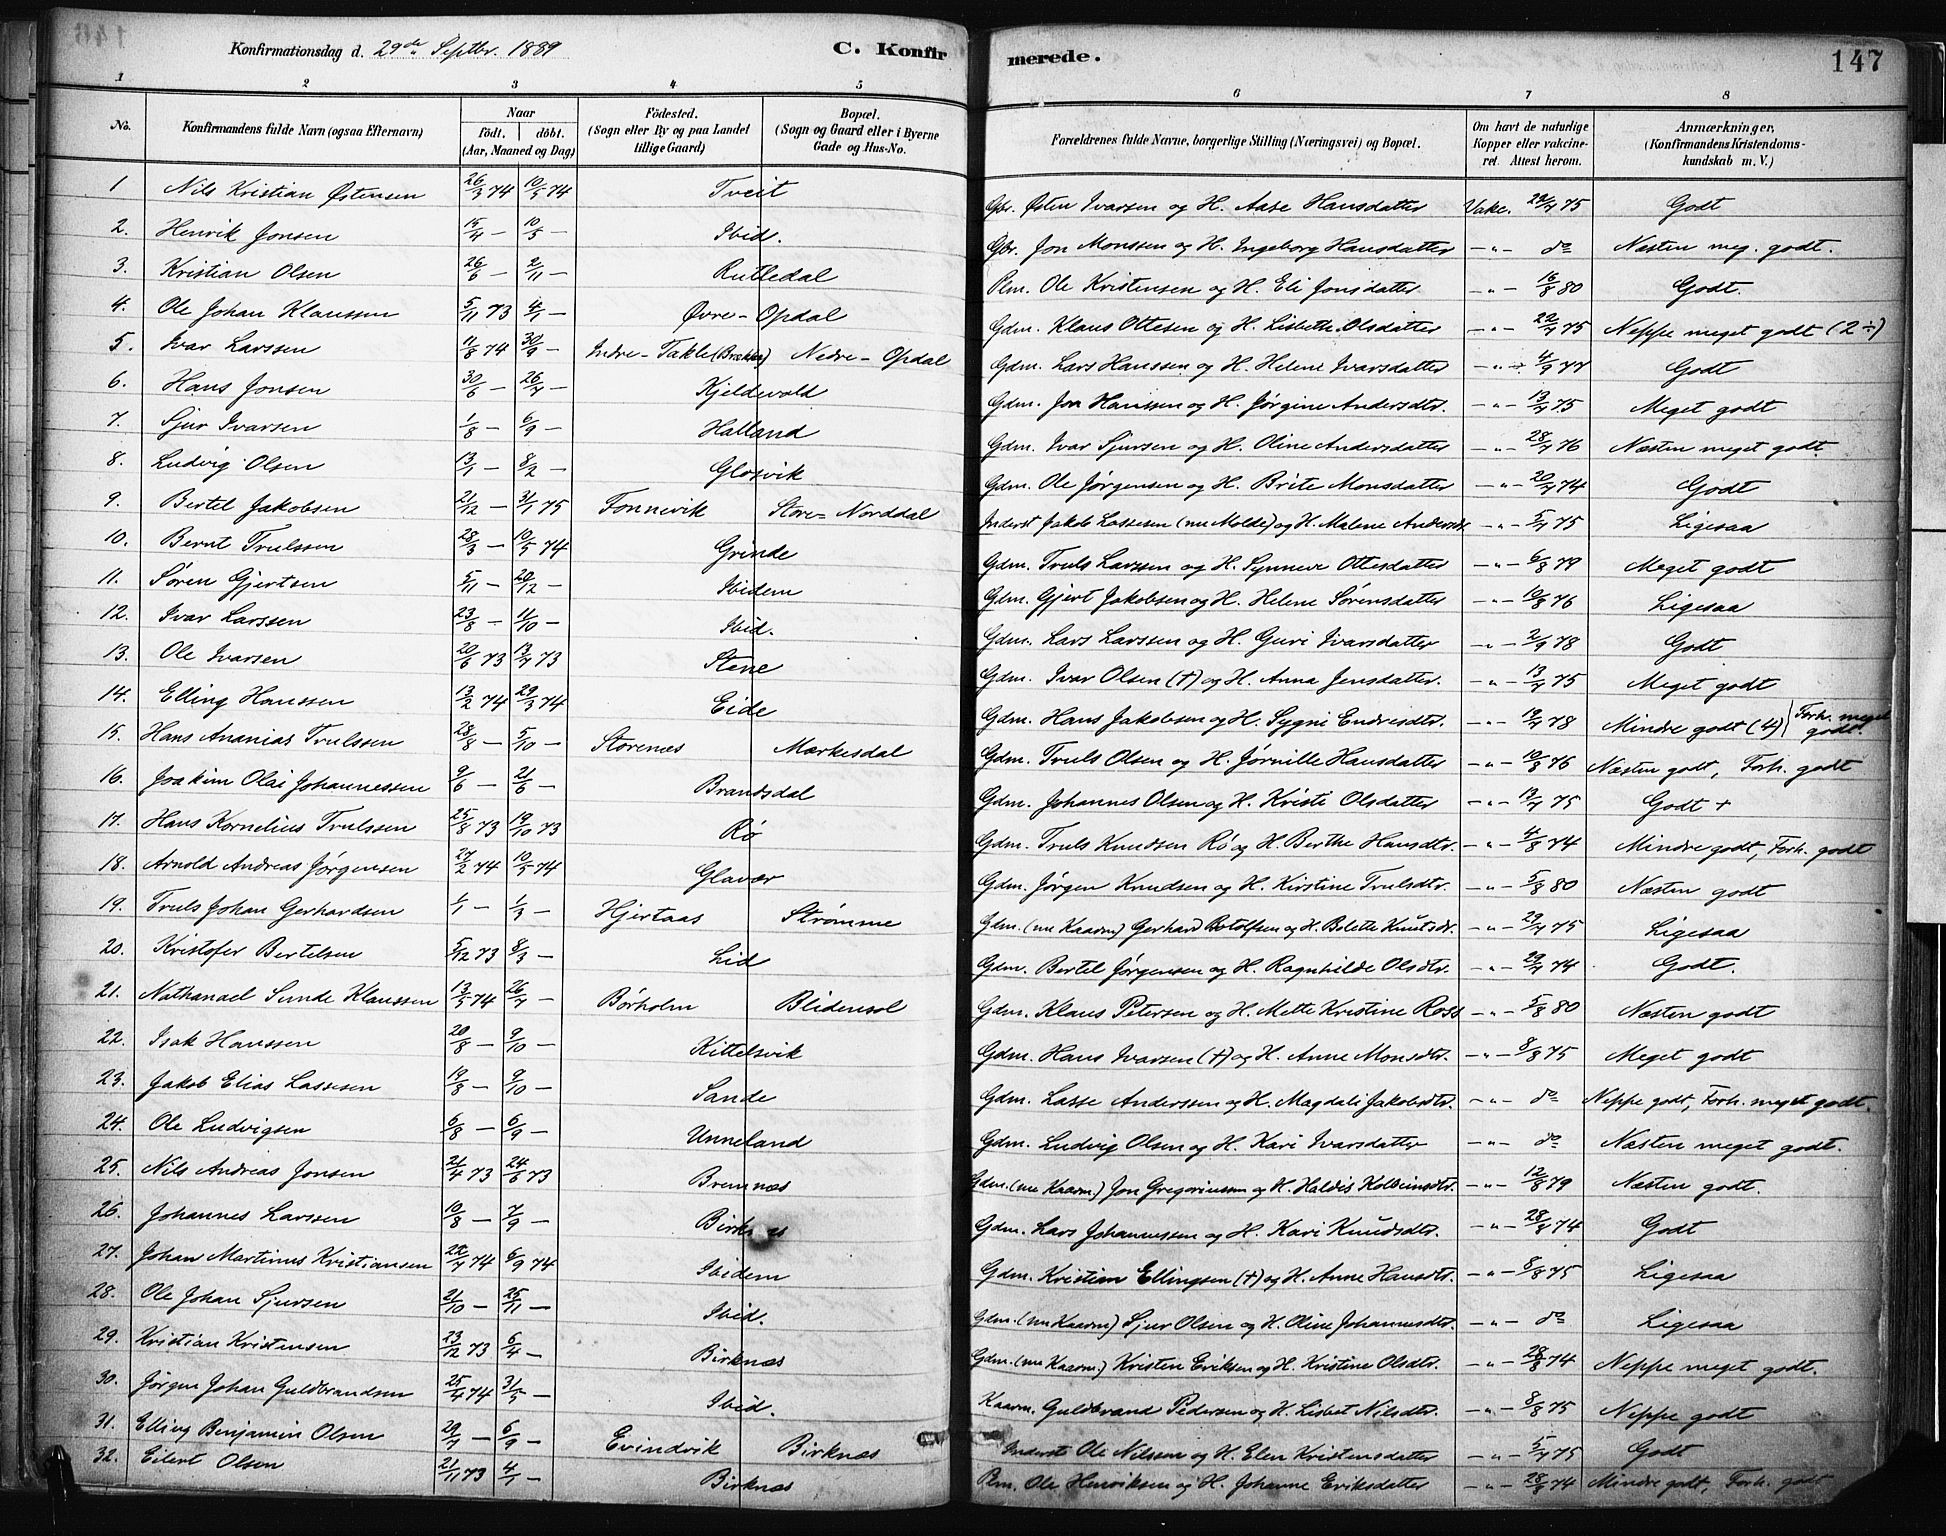 Konfirmationsdag d. 29de Septbr. 1889 C. Konfirmerede. 147
1 2 3 4 5 6 7 8
No. Konfirmandens fulde Navn (ogsaa Efternavn) Naar født. døbt. (Aar, Maaned og Dag) Födested. (Sogn eller By og paa Landet tillige Gaard) Bopæl. (Sogn og Gaard eller i Byerne Gade og Hus-No. Forældrenes fulde Navne, borgerlige Stilling (Næringsvei) og Bopæl. Om havt de naturlige Kopper eller vakcineret. Attest herom. Anmærkninger, (Konfirmandens Kristendomskundskab m. V.)
1 Nils Kristian Østensen 26/3 74 10/5 74 Tveit Gbr. Østen Ivarsen og H. Aase Hansdatter Vakc. 22/7 75 Godt
2. Henrik Jonsen 15/4 — 10/5 — Ibid. Gbr. Jon Monssen og H. Ingeborg Hansdatter — " — do Næsten meg. godt.
3. Kristian Olsen 26/6 — 2/11 — Rutledal Plm. Ole Kristensen og H. Eli Jonsdatter — " — 16/8 80 Godt.
4. Ole Johan Klaussen 5/11 73 4/1 — Øvre-Opdal Gdm. Klaus Ottesen og H. Lisbeth Olsdatter — " — 22/7 75 Neppe meget godt (2÷)
5. Ivar Larssen 11/8 74 30/9 — Indre-Takle (Brække) Nedre-Opdal Gdm. Lars Hanssen og H. Helene Ivarsdatter — " — 4/9 77 Godt
6. Hans Jonsen 30/6 — 26/7 — Kjeldevold Gdm. Jon Hanssen og H. Jørgine Andersdtr. — " — 13/7 75 Meget godt
7. Sjur Ivarsen 1/8 — 6/9 — Halland Gdm. Ivar Sjursen og H. Oline Andersdatter — " — 28/7 76 Næsten meget godt.
8. Ludvig Olsen 13/1 — 8/2 — Glosvik Gdm. Ole Jørgensen og H. Brite Monsdatter — " — 20/7 74 Godt
9. Bertel Jakobsen 21/12 — 31/1 75 Tonnevik Store-Norddal Inderst Jakob Lassesen (nu Molde) og H. Malene Andersdr. — " — 5/7 75 Ligesaa
10. Bernt Trulssen 28/3 — 10/5 74 Grinde Gdm. Truls Larssen og H. Synneve Ottesdatter — " — 6/8 79 Meget godt
11. Søren Gjertsen 5/11 — 20/12 — Ibidem Gdm. Gjert Jakobsen og H. Helene Sørensdatter — " — 10/8 76 Ligesaa
12. Ivar Larssen 23/8 — 11/10 — Ibid. Gdm. Lars Larssen og H. Guri Ivarsdatter — " — 2/9 78 Godt
13. Ole Ivarsen 20/6 73 13/7 73 Stene Gdm. Ivar Olsen (†) og H. Anna Jensdatter. — " — 13/7 75 Meget godt
14. Elling Hanssen 13/2 74 29/3 74 Eide Gdm. Hans Jakobsen og H. Sygni Endresdtr. — " — 12/7 78 Mindre godt (4) Forh. meget godt.
15. Hans Ananias Trulssen 28/8 — 5/10 — Storenæs Mærkesdal Gdm. Truls Olsen og H. Jørnille Hansdatter — " — 10/8 76 Næsten godt, Forh. godt
16. Joakim Olai Johannessen 9/6 — 21/6 — Brandsdal Gdm. Johannes Olsen og H. Kristi Olsdatter — " — 13/7 75 Godt +
17. Hans Kornelius Trulssen 25/8 73 19/10 73 Rø Gdm. Truls Knudsen Rø og H. Berthe Hansdtr. — " — 4/8 74 Mindre godt, Forh. godt
18. Arnold Andreas Jørgensen 27/2 74 10/5 74 Glavær Gdm. Jørgen Knudsen og H. Kirstine Trulsdtr. — " — 5/8 80 Næsten godt
19. Truls Johan Gerhardsen 1/1 — 1/3 — Hjertaas Strømme Gdm. (nu Kaarm) Gerhard Botolfsen og H. Belette Knutsdr. — " — 29/7 75 Ligesaa
20. Kristofer Bertelsen 5/12 73 8/3 — Lid Gdm. Bertel Jørgensen og H. Ragnhilde Olsdtr. — " — 29/7 74 Godt.
21. Nathanael Sunde Klaussen 13/5 74 26/7 — Børholm Blidensol Gdm. Klaus Petersen og H. Mette Kristine Ross — " — 5/8 80 Næsten godt
22. Isak Hanssen 20/8 — 9/10 — Kittelsvik Gdm. Hans Ivarsen (†) og H. Anne Monsdtr. — " — 8/8 75 Meget godt
23. Jakob Elias Lassesen 19/8 — 9/10 — Sande Gdm. Lasse Anderssen og H. Magdali Jakobsdtr. — " — do Neppe godt, Forh. meget godt.
24. Ole Ludvigsen 6/8 — 6/9 — Unneland Gdm. Ludvig Olsen og H. Kari Ivarsdatter — " — do Næsten meget godt.
25. Nils Andreas Jonsen 21/4 73 24/6 73 Bremnæs Gdm. (nu Kaarm.) Jon Gregoriussen og H. Haldis Kolbeinsdtr. — " — 12/8 79 Næsten godt.
26. Johannes Larssen 10/8 — 7/9 — Birknæs Gdm. Lars Johannessen og H. Kari Knudsdtr. — " — 28/8 74 Godt
27. Johan Martinus Kristiansen 22/7 74 6/9 74 Ibidem Gdm. Kristian Ellingsen (†) og H. Anne Hansdtr. — " — 8/8 75 Ligesaa
28. Ole Johan Sjursen 21/10 — 25/11 — Ibid. Gdm. (nu Kaarm) Sjur Olsen og H. Oline Johannesdtr. — " — do Ligesaa
29. Kristian Kristensen 23/12 73 6/4 — Birknæs Gdm. (nu Kaarm.) Kristen Eriksen og H. Kristine Olsdtr. — " — 28/8 74 Neppe meget godt.
30. Jørgen Johan Guldbrandsen 25/4 74 31/5 — Ibid. Kaarm. Guldbrand Pedersen og H. Lisbet Nilsdtr. — " — 8/8 75 Neppe godt
31. Elling Benjamin Olsen 29/7 — 6/9 — Evindvik Birknæs Inderst Ole Nilssen og H. Elen Kristensdatter — " — 5/7 75 Godt
32. Eilert Olsen 21/11 73 4/1 — Birknæs Plm. Ole Henriksen og H. Johanne Eriksdatter — " — 28/8 74 Mindre godt, Forh. godt